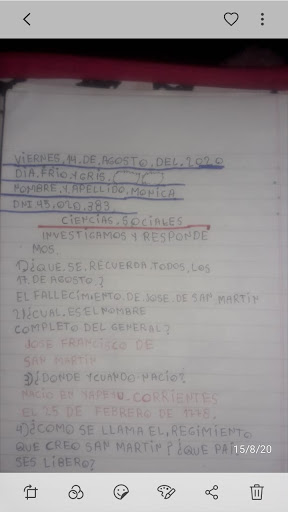 VIERNES, 14. DE, AGOSTO, DEL, 2020
DIA, FRIO, Y GRIS,
NOMBRE, Y, APELLIDO, MONICA
DNI, 43, 020, 383,
CIENCIAS. SOCIALES
INVESTIGAMOS Y RESPONDE
MOS.
1)¿QUE. SE. RECUERDA. TODOS, LOS
17. DE AGOSTO?
EL FALLECIMIENTO. DE JOSE. DE SAN MARTIN
2)¿CUAL. ES EL NOMBRE
COMPLETO DEL GENERAL?
JOSE FRANCISCO DE
SAN MARTIN
3)¿DONDE Y CUANDO NACIO?
NACIO EN YAPEYU. CORRIENTES
EL 25 DE FEBRERO DE 1778.
4)¿COMO SE LLAMA EL, REGIMIENTO
QUE CREO SAN MARTIN? ¿QUE PAI
15/8/20
SES LIBERO?